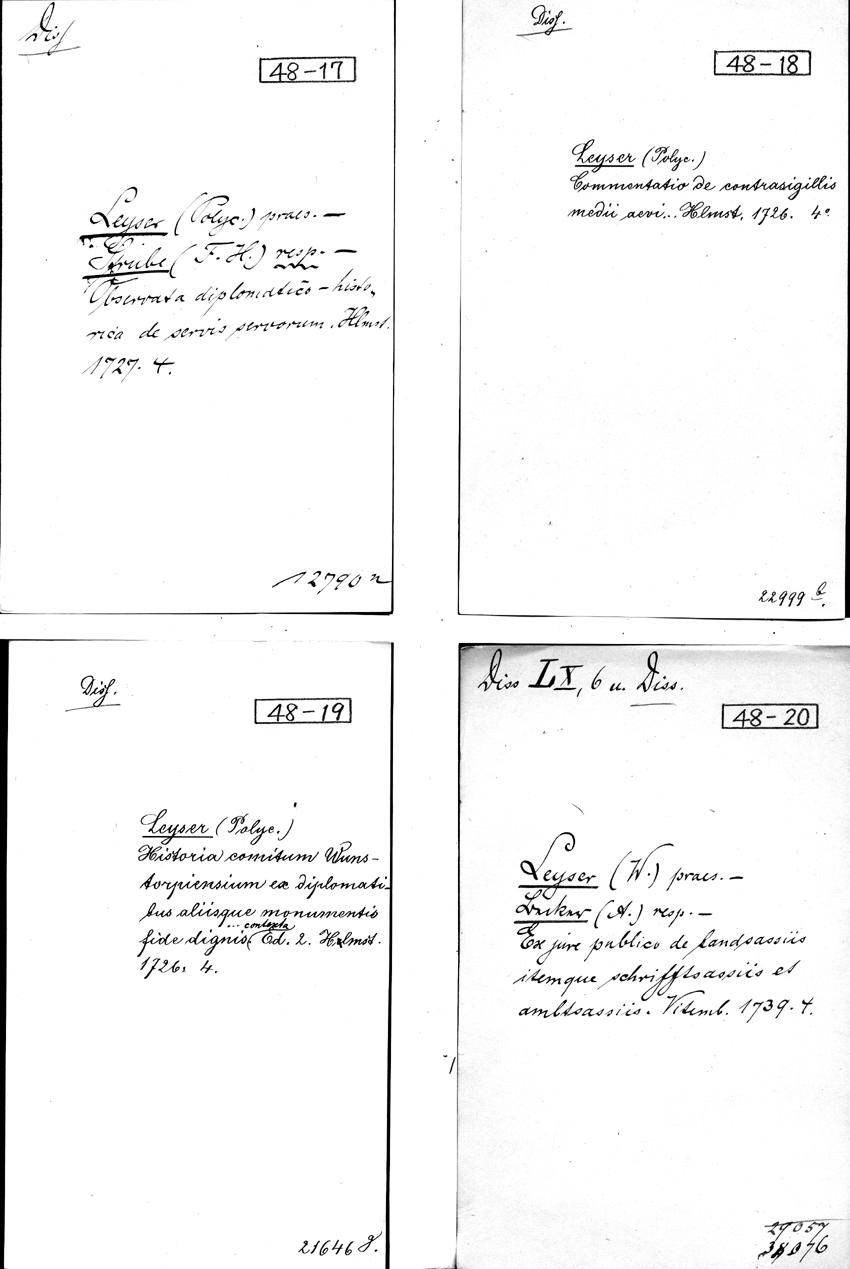 Diss
48-17
Leyser (Polyc.) praes. —
Strube (F. H.) resp. —
Observata diplomatico-histo-
rica de servis servorum. Hlmst.
1727. 4.
12790 n
Diss.
48-18
Leyser (Polyc.)
Commentatio de contrasigillis
medii aevi... Hlmst. 1726. 4°
22999 b.
Diss.
48-19
Leyser (Polyc.)
Historia comitum Wuns-
torpiensium ex diplomati-
bus aliisque monumentis
... contexta
fide dignis( Ed. 2. Helmst.
1726. 4.
21646 d.
Diss LX, 6 u. Diss.
48-20
Leyser (W.) praes. —
(A.) resp. —
Ex jure publico de landsassiis
itemque schrifftsassiis et
ambtsassiis. Vitemb. 1739. 4.
29057